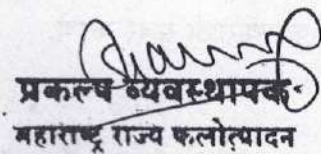 प्रकल्प व्यवस्थापक
महाराष्ट्र राज्य फलोत्पादन